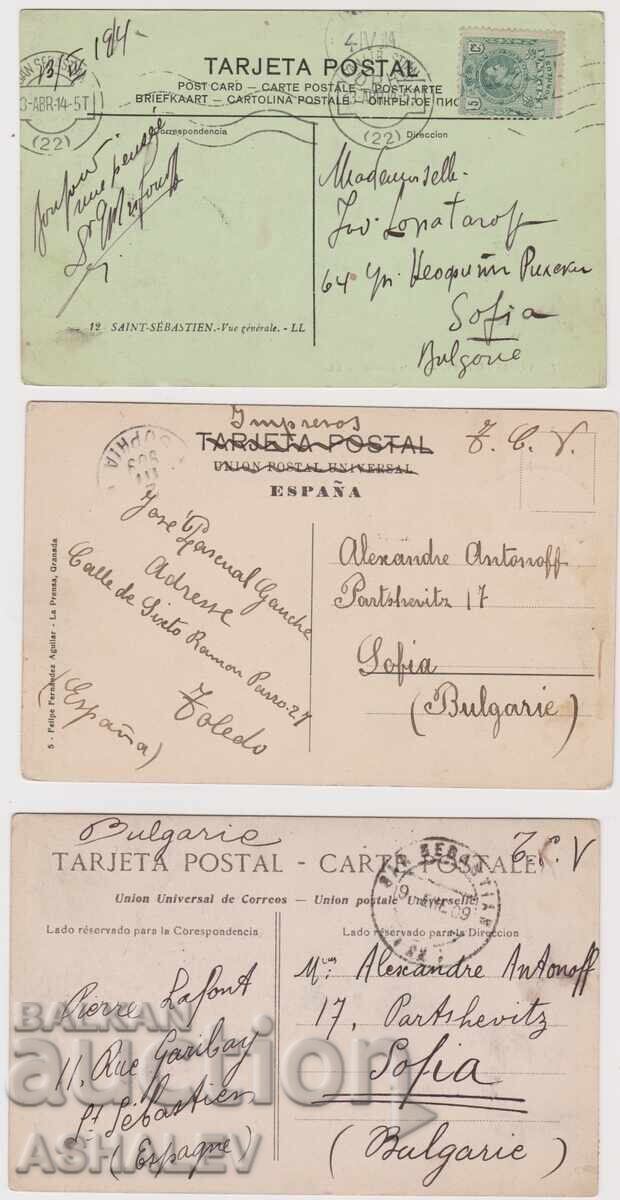 13/IV 1914.
3-ABR-14-5T
(22)
4 IV
(22)
TARJETA POSTAL
POST CARD — CARTE POSTALE — POSTKARTE
BRIEFKAART — CARTOLINA POSTALE — ОТКРЫТОЕ ПИС
Correspondencia
Direccion
5
Bonjour
une pensée
Mademoiselle
Lopataroff
64 Ул. Неофитъ Рилски
Sofia
Bulgarie
12 SAINT-SÉBASTIEN.-Vue générale. - LL
Impresos
TARJETA POSTAL
UNION POSTAL UNIVERSAL
ESPAÑA
T. C. V.
SOPHIA
José Pascual Gauche
Adresse
Calle de Sixto Ramon Parro-27
Toledo
(España)
Alexandre Antonoff
Partshevitz 17
Sofia
(Bulgarie)
5 - Felipe Fernández Aguilar - La Prensa, Granada
Bulgarie
T. C. V
TARJETA POSTAL - CARTE POSTALE
Union Universal de Correos — Union postale Universelle
Lado réservado para la Corespondencia
Lado réservado para la Direccion
SAN SEBASTIAN
09
Pierre Lafont
11, Rue Garibay
St Sébastien
(Espagne)
Alexandre Antonoff
17, Partshevitz
Sofia
(Bulgarie)
BALKAN
auction
ASHALEV